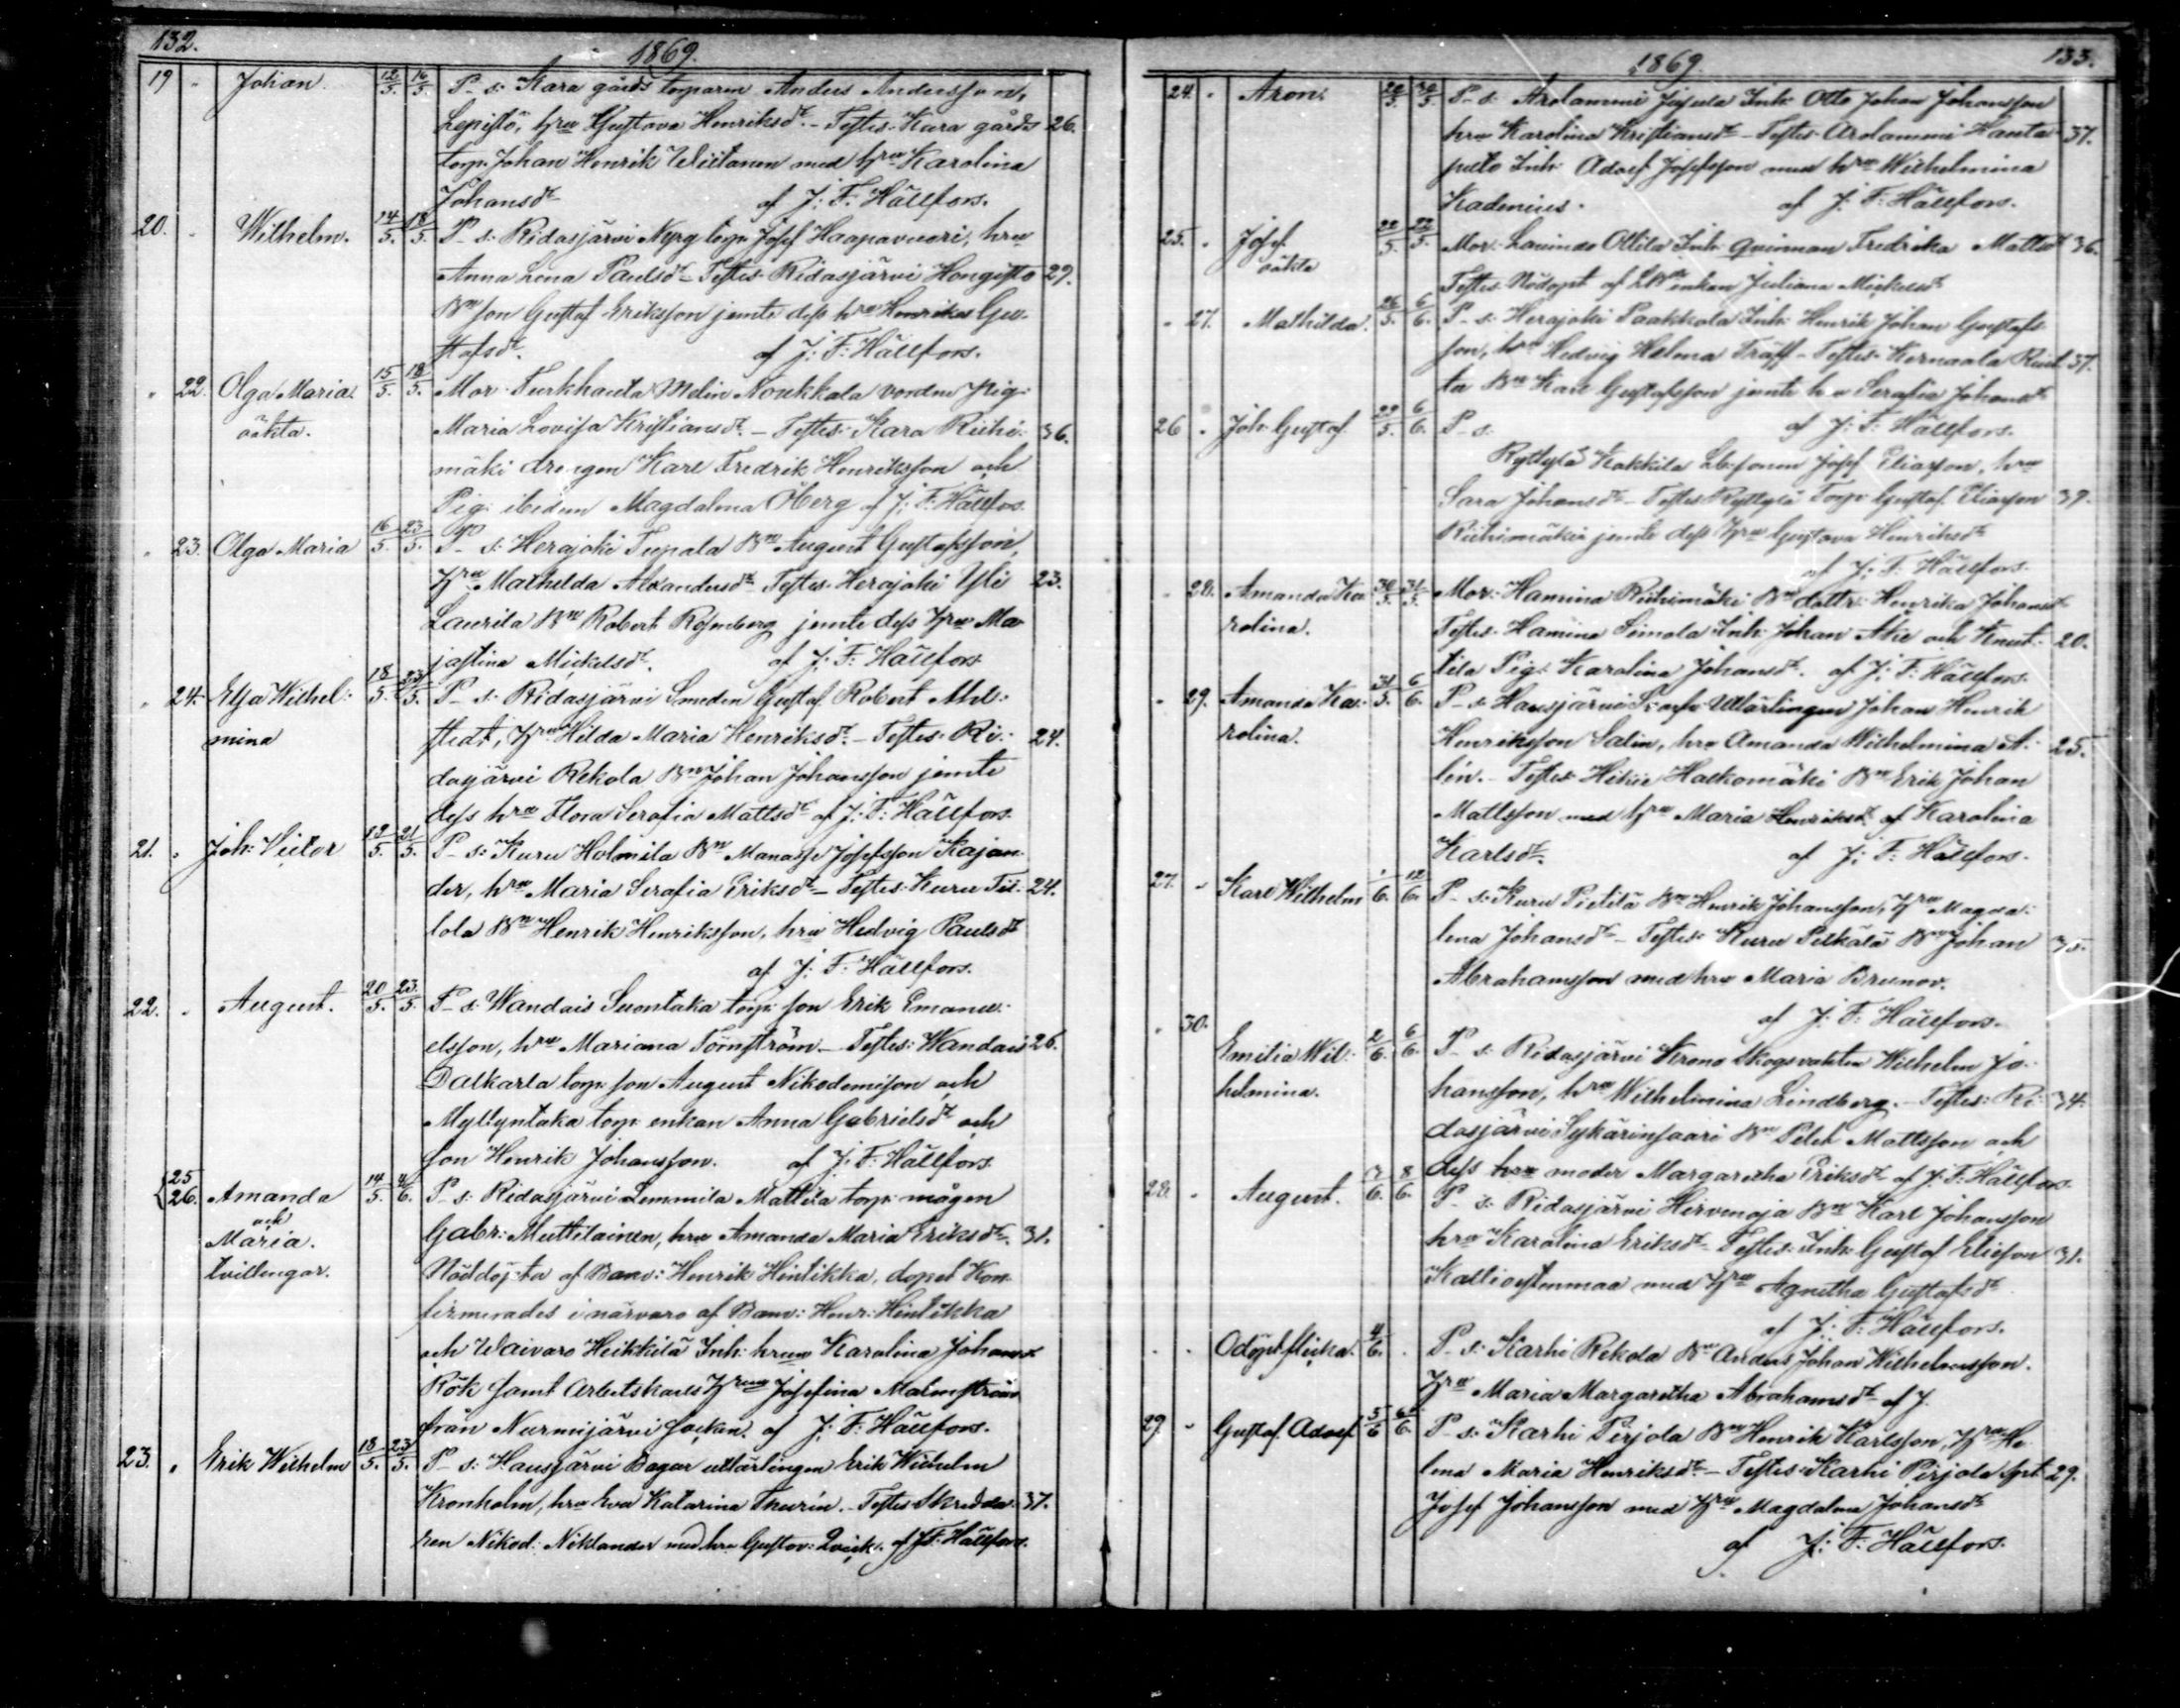 132.
1869.
19 - Johan. 12/5. 16/5. P-s: Kara gårds torparen Anders Andersson,
Lepistö, hru Gustava Henriksdr. - Testes: Kara gårds 26.
torp. Johan Henrik Wiitanen med hru Karolina
Johansdr af J: F: Hällfors.
20. - Wilhelm. 14/5. 18/5. P-s: Ridasjärvi Nyrg torp. Josef Haapavuori, hru
Anna Lena Paulsdr - Testes: Ridasjärvi Hongisto 29.
Bn son Gustaf Eriksson jemte dess hru Henrika Gu-
stafsdr. af J: F: Hällfors.
" 22. Olga Maria 15/5. 18/5. Mor: Turkhauta Melin Noukkala vordne Pig:
oäkta. Maria Lovisa Kristiansdr. - Testes: Kara Riihi- 36.
mäki drengen Karl Fredrik Henriksson och
Pig: ibidem Magdalena Öberg af J: F: Hällfors.
" 23. Olga Maria 16/5. 23/5. P-s: Herajoki Tupala Bn August Gustafsson,
hru Mathilda Alexandersdr Testes: Herajoki Yli 23.
Laurila Bn Robert Rosenberg jemte dess hru Ma-
jastina Mickelsdr. af J: F: Hällfors
" 24. Elsa Wilhel: 18/5. 23/5. P-s: Ridasjärvi Smeden Gustaf Robert Ahl-
mina stedt, hru Hilda Maria Henriksdr. - Testes: Ri- 24.
dasjärvi Rekola Bn Johan Johansson jemte
dess hru Flora Serafia Mattsdr af J: F: Hällfors.
21. " Joh: Victor 19/5. 21/5. P-s: Kuru Holmila Bn Manasse Josefsson Kajan-
der, hru Maria Serafia Eriksdr - Testes: Kuru Tii- 24.
lola Bn Henrik Henriksson, hru Hedvig Paulsdr
af J: F: Hällfors.
22. " August. 20/5. 23/5. P-s: Wandais Suontaka torp. son Erik Emanu-
elsson, hru Mariana Törnström - Testes: Wandais 26.
Dalkarla torp. son August Nikodemison och
Myllyntaka torp. enkan Anna Gabrielsdr och
son Henrik Johansson. af J: F: Hällfors.
25 26. Amanda 14/5. 4/6. P-s: Ridasjärvi Lemmila Mattila torp. mågen
och Gabr: Muttilainen, hru Amanda Maria Eriksdr. 31.
Maria. Nöddöpta af Banv: Henrik Hintikka, dopet Kon-
tvillingar. firmerades i närvaro af Banv: Henr: Hintikka
och Waivaro Heikkilä Inh: hrun Karolina Johansdr
Rök samt Arbetskarls hrun Josefina Malmström
från Nurmijärvi socken. af J: F: Hällfors.
23. " Erik Wilhelm 18/5. 23/5. P-s: Hausjärvi Bagar utlärlingen Erik Wilhelm
Kronholm, hru Eva Katarina Thurin. - Testes Skredda- 37.
ren Nikod: Niklander med hru Gustav: Qvick. af J: F: Hällfors.
1869.
133.
24. " Aron. 20/5. 30/5. P-s: Arolammi Jussila Inh: Otto Johan Johansson
hru Karolina Kristiansdr - Testes: Arolammi Hauta- 37.
pelto Inh: Adolf Josefsson med hru Wilhelmina
Kadenius. af J: F: Hällfors.
25. " Josef 22/5. 22/5. Mor: Lavinto Ollila Inh: qvinnan Fredrika Mattsdr 36.
oäkta Testes: Nödöpt af enkan Juliana Mickelsdr
" 27. Mathilda. 26/5. 6/6. P-s: Herajoki Paakkala Inh: Henrik Johan Gustafs-
son, hru Hedvig Helena Träff - Testes: Kernaala 37.
Bn Karl Gustafsson jemte hru Serafia Johansdr
26 " Joh: Gustaf. 29/5. 6/6. P-s: af J: F: Hällfors.
Ryttylä Kakkila Josef Eliasson, hru
Sara Johansdr - Testes Ryttylä Torp: Gustaf Eliasson 39.
Riihimäki jemte dess hru Gustava Henriksdr
af J: F: Hällfors.
" 28. Amanda Ka- 30/5. 31/5. Mor: Hamina Riihimäki Bn dottr: Henrika Johansdr
rolina. Testes: Hamina Simola Inh: Johan och Knut- 20.
tila Pig: Karolina Johansdr. af J: F: Hällfors.
" 29. Amanda Ka- 31/5. 6/6. P-s: Hausjärvi Utlärlingen Johan Henrik
rolina. Henriksson Salin, hru Amanda Wilhelmina A- 25.
lén. - Testes: Hikiä Halkomäki Bn Erik Johan
Mattsson med hru Maria Henriksdr af Karolina
Karlsdr. af J: F: Hällfors.
27. " Karl Wilhelm 1/6. 12/6. P-s: Kuru Pietilä Bn Henrik Johansson, hru Magda-
lena Johansdr - Testes: Kuru Pelkälä Bn Johan 35.
Abrahamsson med hru Maria Brunov.
af J: F: Hällfors.
" 30. Emilia Wil- 2/6. 6/6. P-s: Ridasjärvi Krono Skogsvakten Wilhelm Jo-
helmina. hansson, hru Wilhelmina Lindberg. - Testes: Ri- 34.
dasjärvi Sykärinsaari Bn Petter Mattsson och
dess hru moder Margaretha Eriksdr af J: F: Hällfors.
28. " August. 7/6. 8/6. P-s: Ridasjärvi Hirvenoja Bn Karl Johansson
hru Karolina Eriksdr - Testes: Inh: Gustaf Eliasson 31.
Kallioistenmaa med hru Agnetha Gustafsdr
af J: F: Hällfors.
" " Odöpt flicka. 4/6. " P-s: Karhi Rekola Bn Anders Johan Wilhelmsson.
hru Maria Margaretha Abrahamsdr af J.
29. " Gustaf Adolf 5/6 6/6. P-s: Karhi Pirjola Bn Henrik Karlsson, hru He-
lena Maria Henriksdr - Testes: Karhi Pirjola 29.
Josef Johansson med hru Magdalena Johansdr
af J: F: Hällfors.